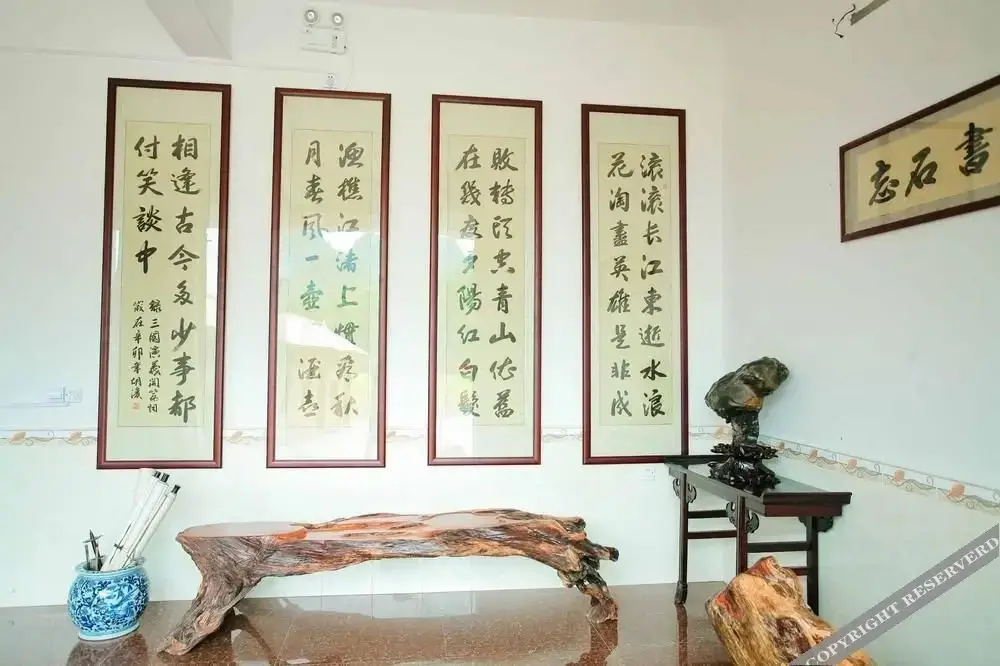 滚滚长江东逝水浪
花淘盡英雄是非成
敗轉頭空青山依舊
在幾度夕陽紅白髮
渔樵江渚上慣看秋
月春風一壺酒喜
相逢古今多少事都
付笑談中
錄三國演義開篇詞
歲在辛卯年胡
書石忘
COPYRIGHT RESERVERD